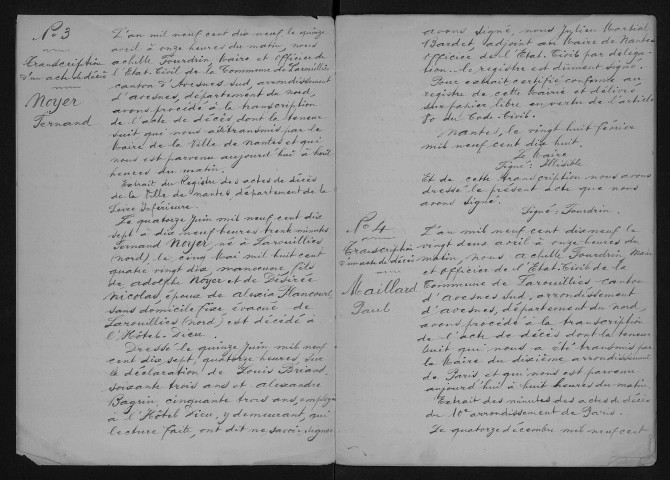 No 3
Transcription
d'un acte de décès
Noyer
Fernand
L'an mil neuf cent dix neuf, le quinze
avril à onze heures du matin, nous
achille Fourdrin, Maire et Officier de
l'Etat Civil de la Commune de Larouillies
canton d'Avesnes Sud, arrondissement
d'avesnes, département du nord,
avons procédé à la transcription
de l'acte de décès dont la teneur
suit qui nous a été transmis par le
Maire de la Ville de Nantes et qui
nous est parvenu aujourd'hui à huit
heures du matin.
Extrait du Registre des actes de décès
de la Ville de nantes, département de la
Loire Inférieure.
Le quatorze Juin mil neuf cent dix
sept à dix neuf heures trente minutes
Fernand Noyer, né à Larouillies
(nord), le cinq Mai mil huit cent
quatre vingt dix, manoeuvre, fils
de adolphe Noyer et de Désirée
Nicolas, époux de alexia Hancourt,
sans domicile fixe, évacué de
Larouillies (nord) est décédé à
l'Hôtel-Dieu.
Dressé le quinze Juin, mil neuf
cent dix sept, quatorze heures, sur
la déclaration de Louis Briand,
soixante trois ans et alexandre
Bagrin, cinquante trois ans, employés
à l'Hôtel Dieu, y demeurant, qui
lecture faite, ont dit ne savoir signer
avons signé, nous Julien Martial
Bardet, adjoint au Maire de Nantes
officier de l'Etat Civil par déléga-
tion. le registre est dûment signé.
Pour extrait certifié conforme au
registre de cette Mairie et délivré
sur papier libre en vertu de l'article
80 du Code Civil.
Nantes, le vingt huit février
mil neuf cent dix huit.
Le Maire
Signé: Illisible
Et de cette transcription nous avons
dressé le présent acte que nous
avons signé.
Signé: Fourdrin.
No 4
Transcription
d'un acte de décès
Maillard
Paul
L'an mil neuf cent dix neuf le
vingt deux avril à onze heures du
matin, nous achille Fourdrin, Maire
et officier de l'Etat-Civil de la
Commune de Larouillies canton
d'avesnes Sud, arrondissement
d'avesnes, département du nord,
avons procédé à la transcription
de l'acte de décès dont la teneur
suit qui nous a été transmis par
le Maire du dixième arrondissement
de Paris et qui nous est parvenu
aujourd'hui à huit heures du matin.
Extrait des minutes des actes de décès
du 10e arrondissement de Paris.
Le quatorze décembre mil neuf cent